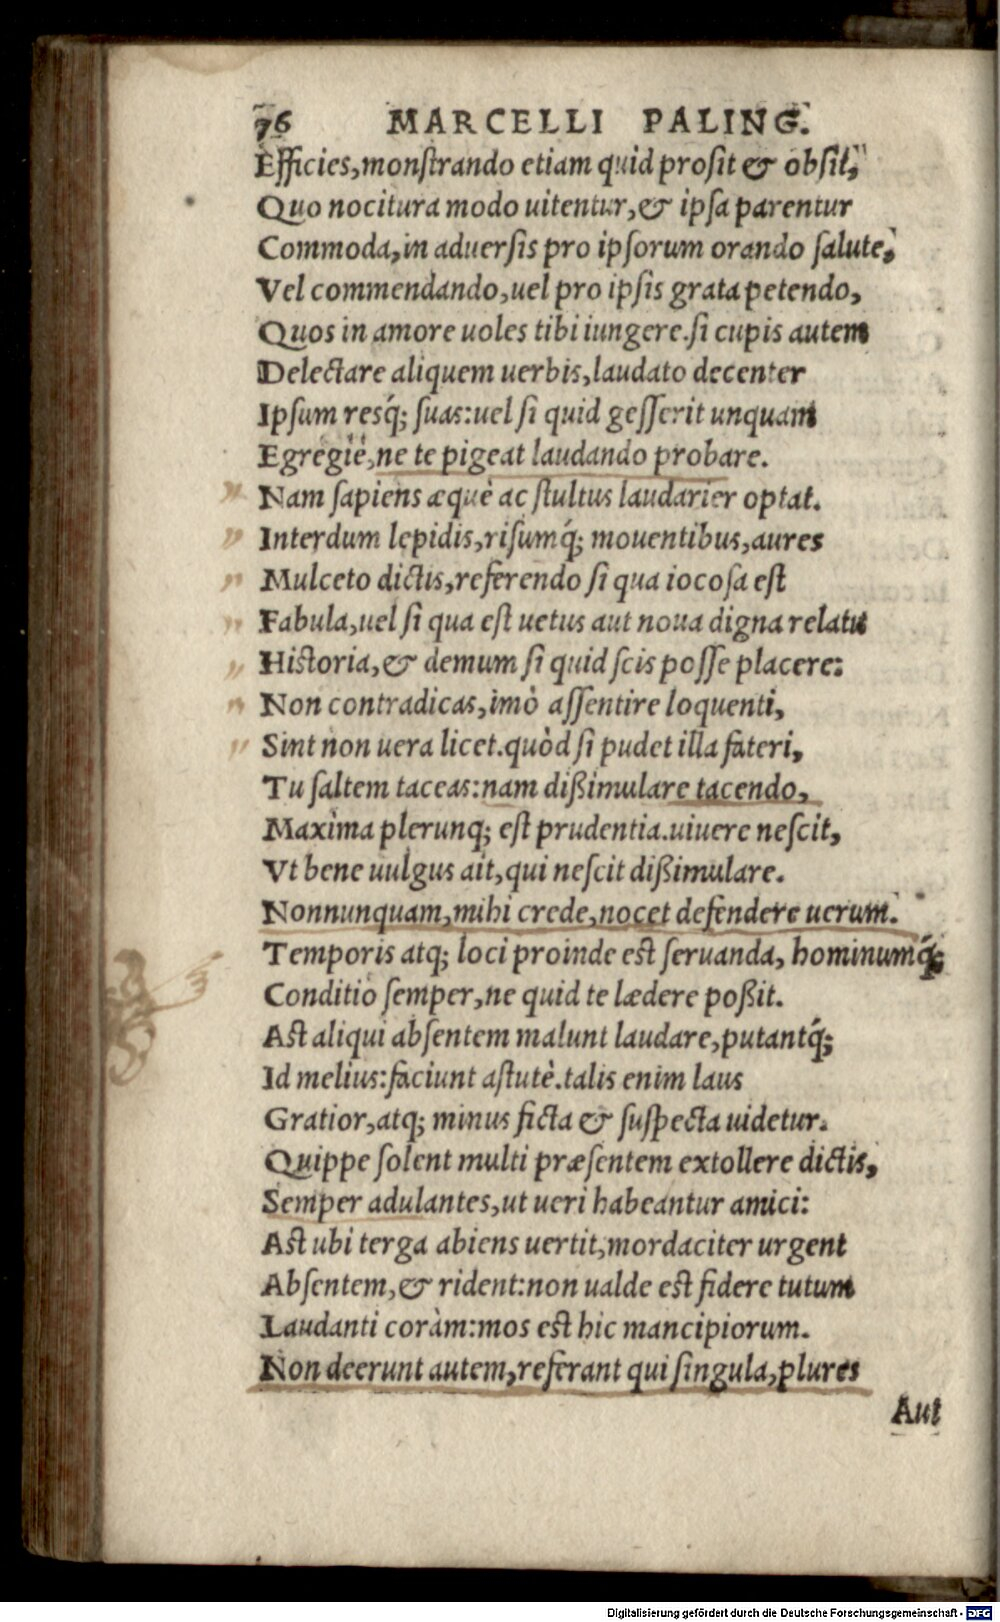 76 MARCELLI PALING.
Efficies, monſtrando etiam quid proſit & obſit,
Quo nocitura modo uitentur, & ipſa parentur
Commoda, in aduerſis pro ipſorum orando ſalute,
Vel commendando, uel pro ipſis grata petendo,
Quos in amore uoles tibi iungere. ſi cupis autem
Delectare aliquem uerbis, laudato decenter
Ipſum resq́; ſuas: uel ſi quid geſſerit unquam
Egregiè, ne te pigeat laudando probare.
" Nam ſapiens æquè ac ſtultus laudarier optat.
" Interdum lepidis, riſumq́; mouentibus, aures
" Mulceto dictis, referendo ſi qua iocoſa eſt
" Fabula, uel ſi qua eſt uetus aut noua digna relatu
" Hiſtoria, & demum ſi quid ſcis poſſe placere:
" Non contradicas, imò aſſentire loquenti,
" Sint non uera licet. quòd ſi pudet illa fateri,
Tu ſaltem taceas: nam dißimulare tacendo,
Maxima plerunq; eſt prudentia. uiuere neſcit,
Vt bene uulgus ait, qui neſcit dißimulare.
Nonnunquam, mihi crede, nocet defendere uerum.
Temporis atq; loci proinde eſt ſeruanda, hominumq́;
Conditio ſemper, ne quid te lædere poßit.
Aſt aliqui abſentem malunt laudare, putantq́;
Id melius: faciunt aſtutè. talis enim laus
Gratior, atq; minus ficta & ſuſpecta uidetur.
Quippe ſolent multi præſentem extollere dictis,
Semper adulantes, ut ueri habeantur amici:
Aſt ubi terga abiens uertit, mordaciter urgent
Abſentem, & rident: non ualde eſt fidere tutum
Laudanti coràm: mos eſt hic mancipiorum.
Non deerunt autem, referant qui ſingula, plures
Aut
Digitalisierung gefördert durch die Deutsche Forschungsgemeinschaft - DFG